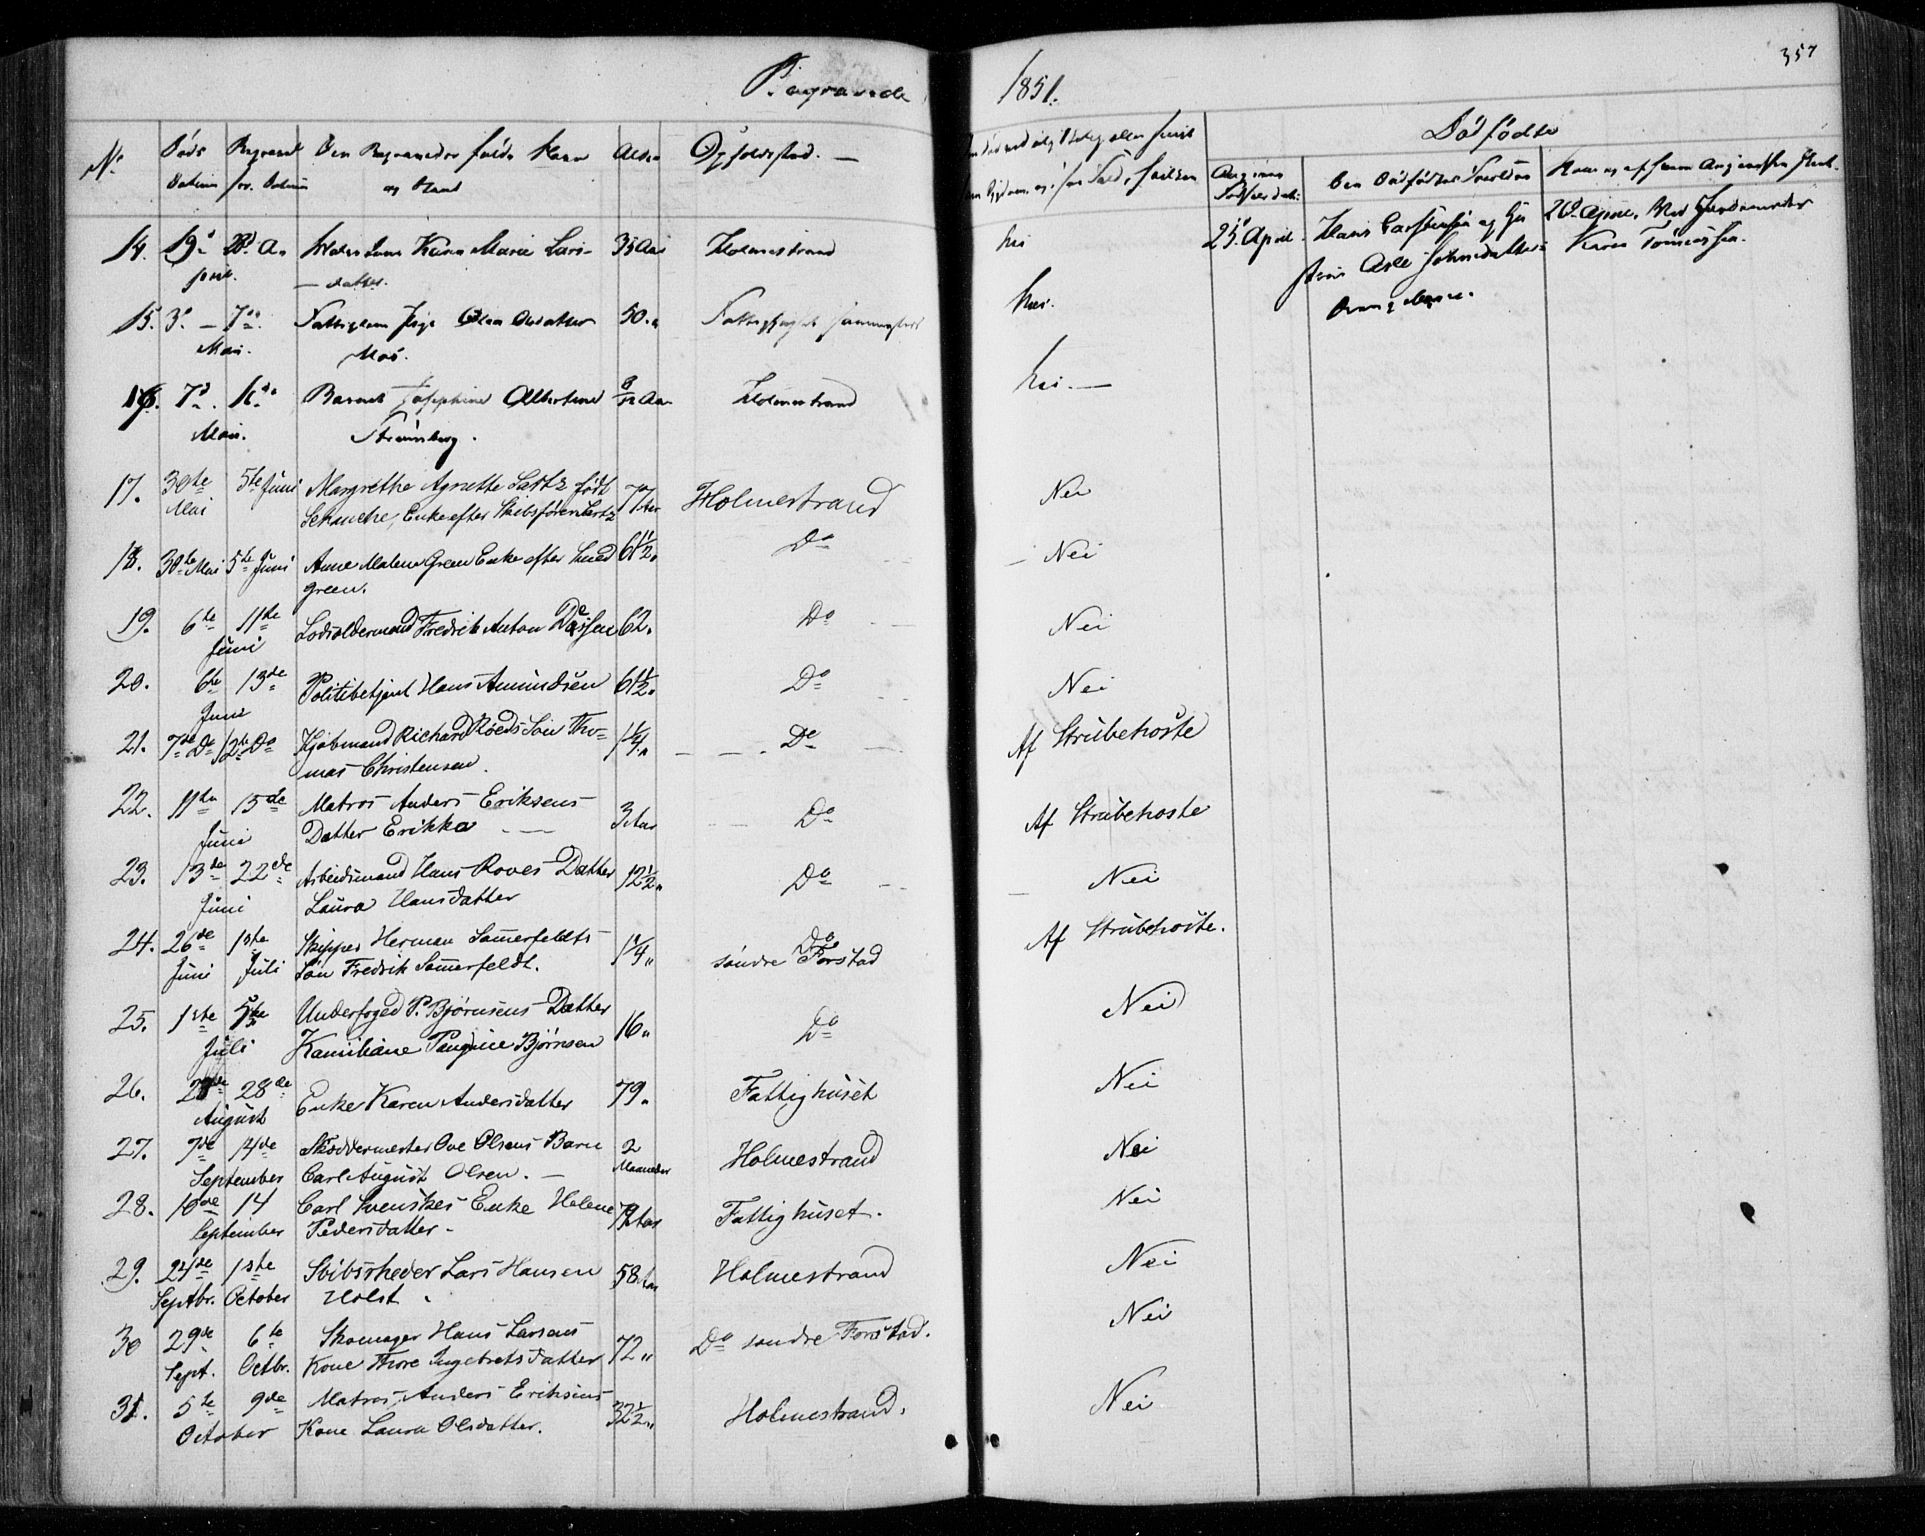 Begravede
1851.
357
No
Døds
Datum
Begravel
ses Datum
Den Begravedes fulde Navn
og Stand
Alder
Opholdssted. —
Dødfødte
Den Dødfødtes Forældre
14. 19de 28d A.
pril.
Karen Marie Lars-
datter.
35 Aar
Holmestrand
Nei
25 April. Hans Carstensen og
Johnsdatter
Karen
15. 3d — 7de
Mai.
Fattiglem Pige Olea Olsdatter
Moss.
50. "
Nei.
16. 7d
Mai.
Barnet Josephine Albertine
Strømberg.
8/12 Aar
Holmestrand
Nei. —
17. 30te
Mai
5te Juni
Margrethe Agnette Lartz født
Schanche, Enke efter Skibsfører Lartz
77 Aar
Holmestrand
Nei
18. 30te Mai 5te Juni Anne Malene Green Enke efter Smed
Green.
61 1/2 "
Do
Nei
19. 6te 11te
Juni
Lodsoldermand Fredrik Anton Dessen
62. Do
Nei
20. 6te 13de
Juni
Politibetjent Hans Amundsen
61 1/2 "
Do
Nei
21. 7de Do 12te Do
Kjøbmand Richard Röeds Søn Tho-
mas Christensen.
1 1/4 "
Do
Af Strubehoste
22. 11te 15de
Juni
Matros Anders Eriksens
Datter Erikka
3 Aar
Do
Af Strubehoste
23. 13de 22de
Juni
Arbeidsmand Hans Roves Datter
Laura Hansdatter
12 1/2 "
Do
Nei
24. 26de 1ste
Juni Juli
Skipper Herman Sømerfeldts
Søn Fredrik Sømerfeldt.
1 1/4 "
Do
søndre Forstad
Af Strubehoste.
25. 1ste 5te
Juli
Underfoged P. Bjørnsens Datter
Kamiliane Pauline Bjørnsen
16 "
Do
Nei
26. 28de
August
Enke Karen Andersdatter
79.
Fattighuset
Nei
27. 7de 14de
September
Skræddermester Ove Olsens Barn
Carl August Olsen. —
2
Maaneder
Holmestrand
Nei
28. 10de 14
September
Carl Svenskes Enke Helene
Pedersdatter —
79 Aar
Fattighuset.
Nei
29. 24de 1ste
Septbr. October
Skibsrheder Lars Hansen
Holst.
58 Aar
Holmestrand
Nei
30 29de 6te
Sept. Octbr.
Skomager Hans Larsens
Kone Thore Ingebretsdatter
72 "
Do søndre Forstad.
Nei
31. 5te 9de
October
Matros Anders Eriksens
Kone Laura Olsdatter.
32 1/2 "
Holmestrand.
Nei